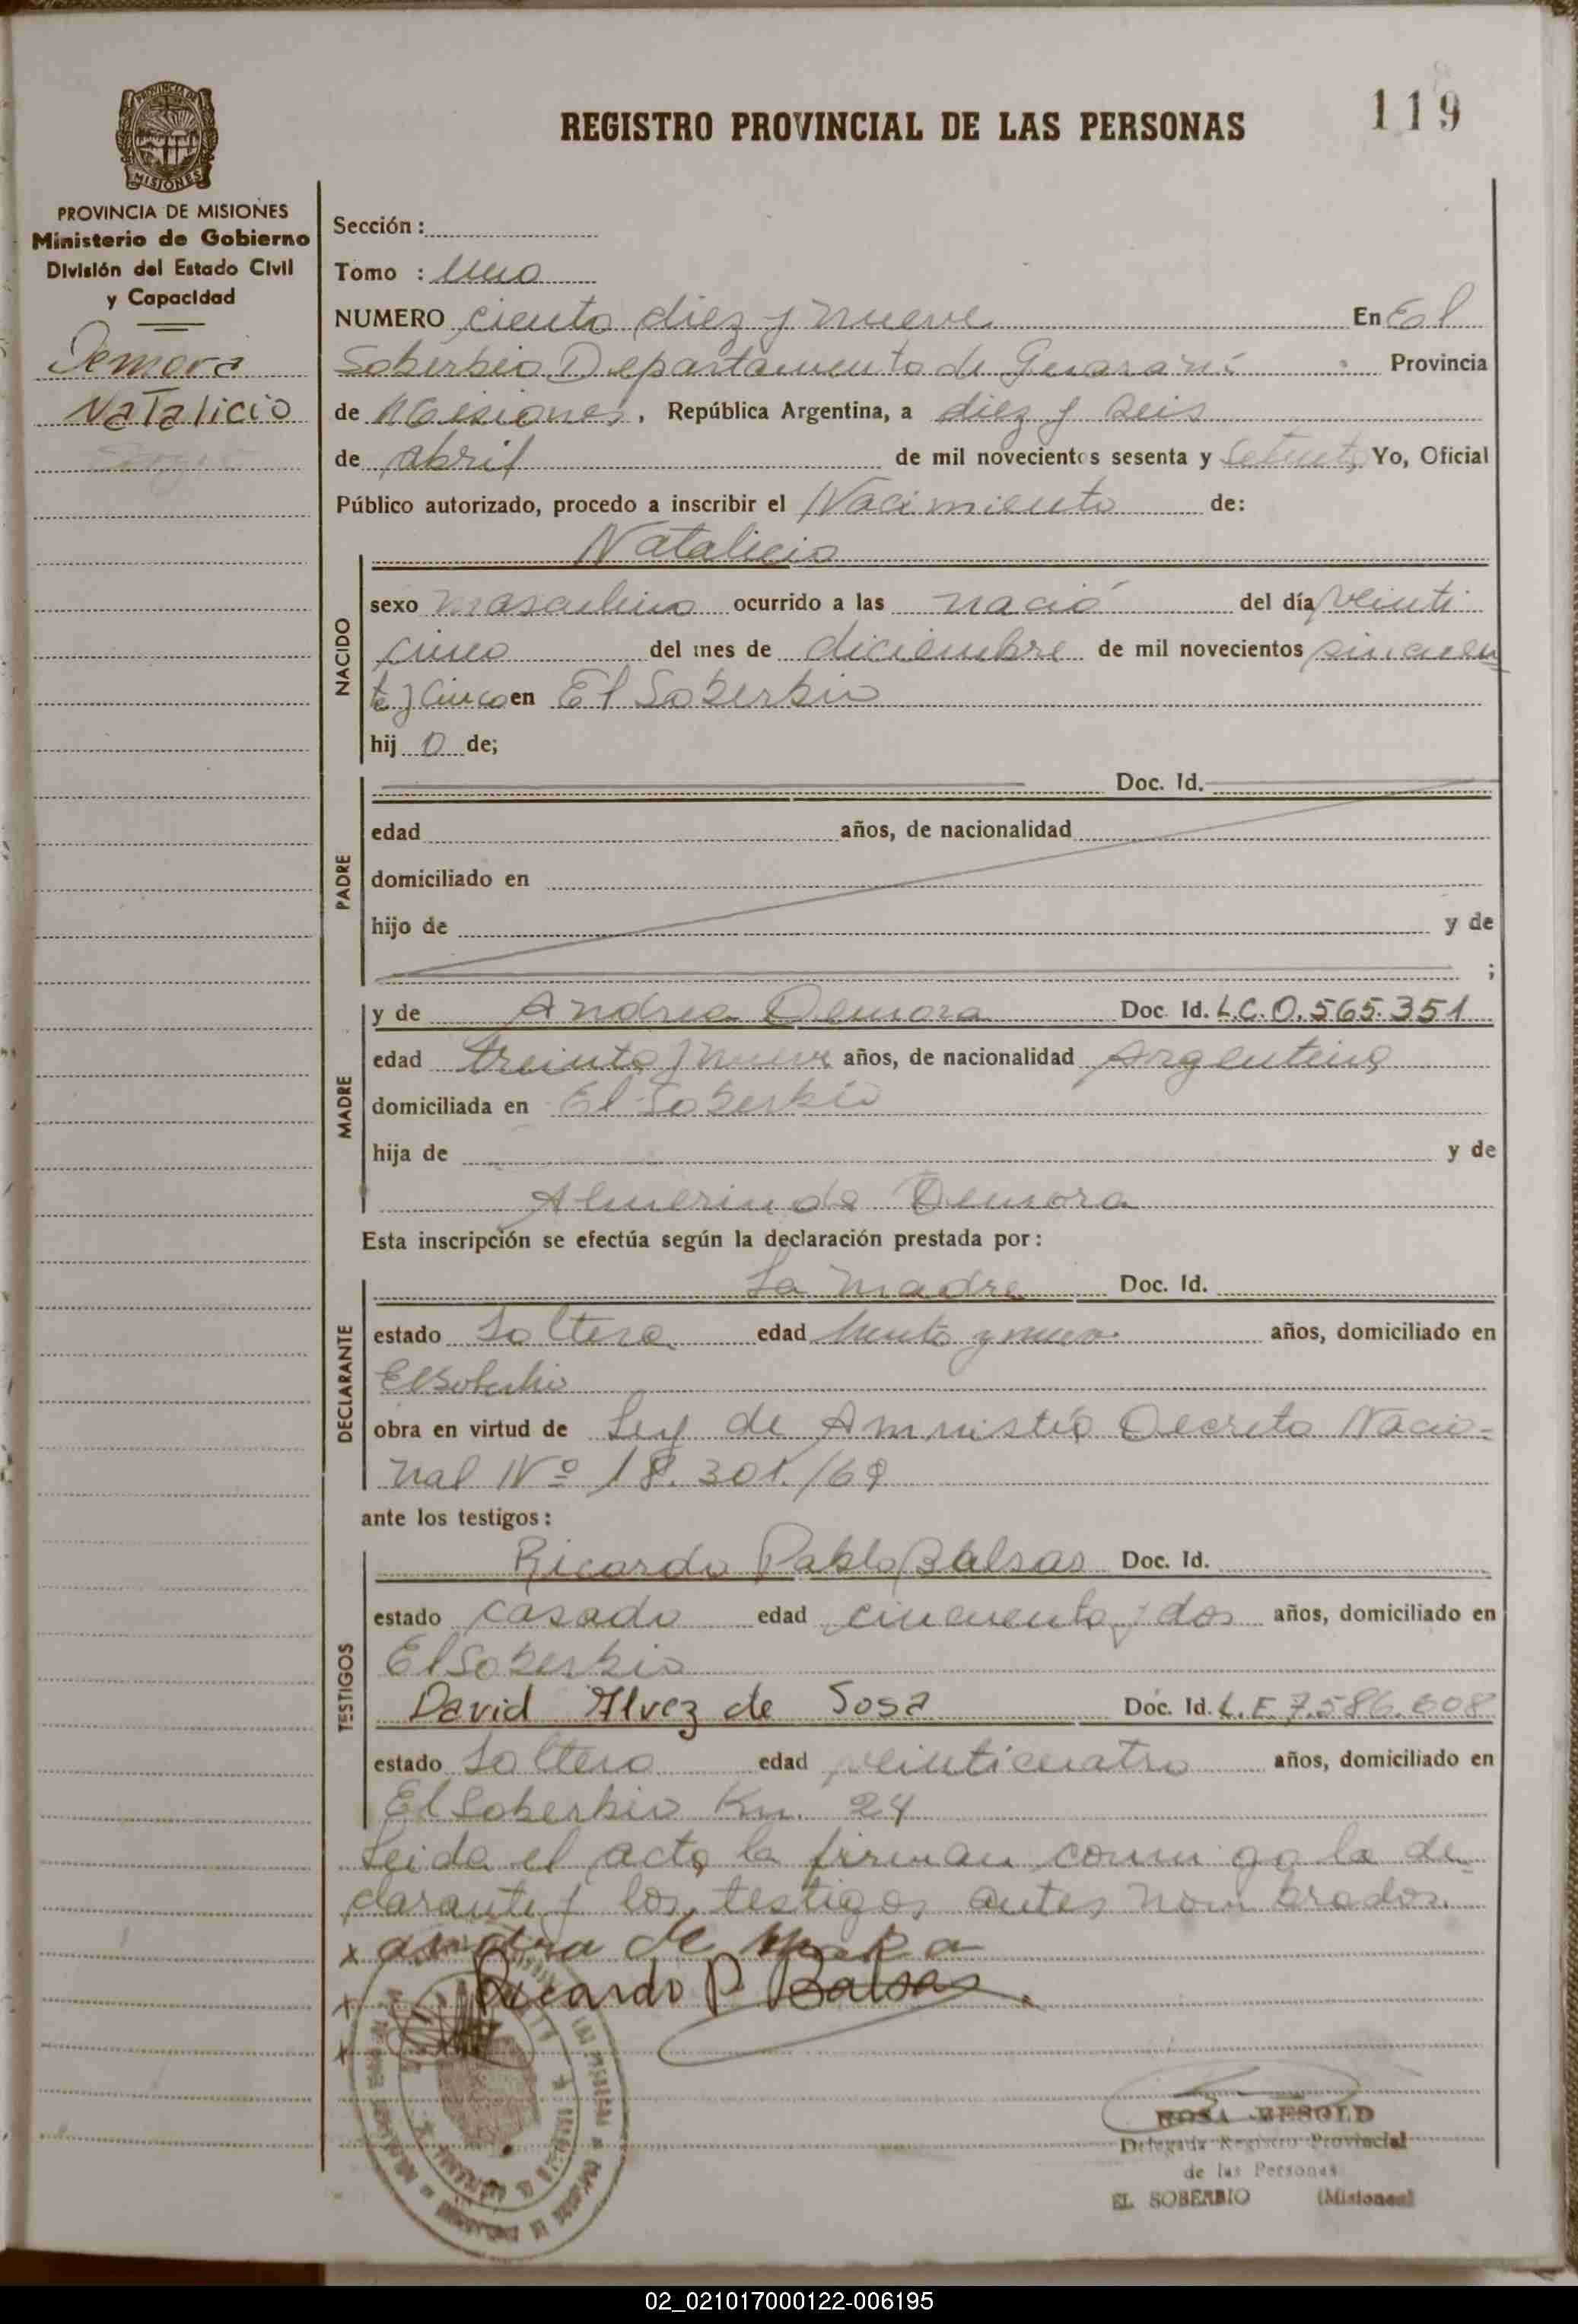 119
REGISTRO PROVINCIAL DE LAS PERSONAS
PROVINCIA DE MISIONES
MISIONES
PROVINCIA DE MISIONES
Ministerio de Gobierno
División del Estado Civil
y Capacidad
Demora
Natalicio
Sección :
Tomo : Uno
NUMERO ciento diez y nueve En El
Soberbio Departamento de Guaraní Provincia
de Misiones, República Argentina, a diez y seis
de abril de mil novecientos sesenta y setenta, Yo, Oficial
Público autorizado, procedo a inscribir el Nacimiento de:
Natalicio
NACIDO
sexo masculino ocurrido a las nació del día veinti
cinco del mes de diciembre de mil novecientos sincuen
ta y cinco en El Soberbio
hij o de;
PADRE
Doc. Id.
edad años, de nacionalidad
domiciliado en
hijo de y de
;
MADRE
y de Andrea Demora Doc. Id. L.C.0.565.351
edad treinta y nueve años, de nacionalidad Argentina
domiciliada en El Soberbio
hija de y de
Almerinda Demora
Esta inscripción se efectúa según la declaración prestada por :
DECLARANTE
La madre Doc. Id.
estado Soltera edad treinta y nueve años, domiciliado en
El Soberbio
obra en virtud de Ley de Amnistía Decreto Nacio=
nal Nº 18.301./69
ante los testigos :
TESTIGOS
Ricardo Pablo Balsas Doc. Id.
estado casado edad cincuenta y dos años, domiciliado en
El Soberbio
David Alvez de Sosa Doc. Id. L.E. 7.586.608
estado Soltero edad veinticuatro años, domiciliado en
El Soberbio Km. 24
Leida el acta, la firman conmigo la de=
clarante y los testigos antes nombrados.
x andrea de mora
x Ricardo P. Balsas
x
ROSA BESOLD
Delegada Registro Provincial
de las Personas
EL SOBERBIO (Misiones)
02_021017000122-006195